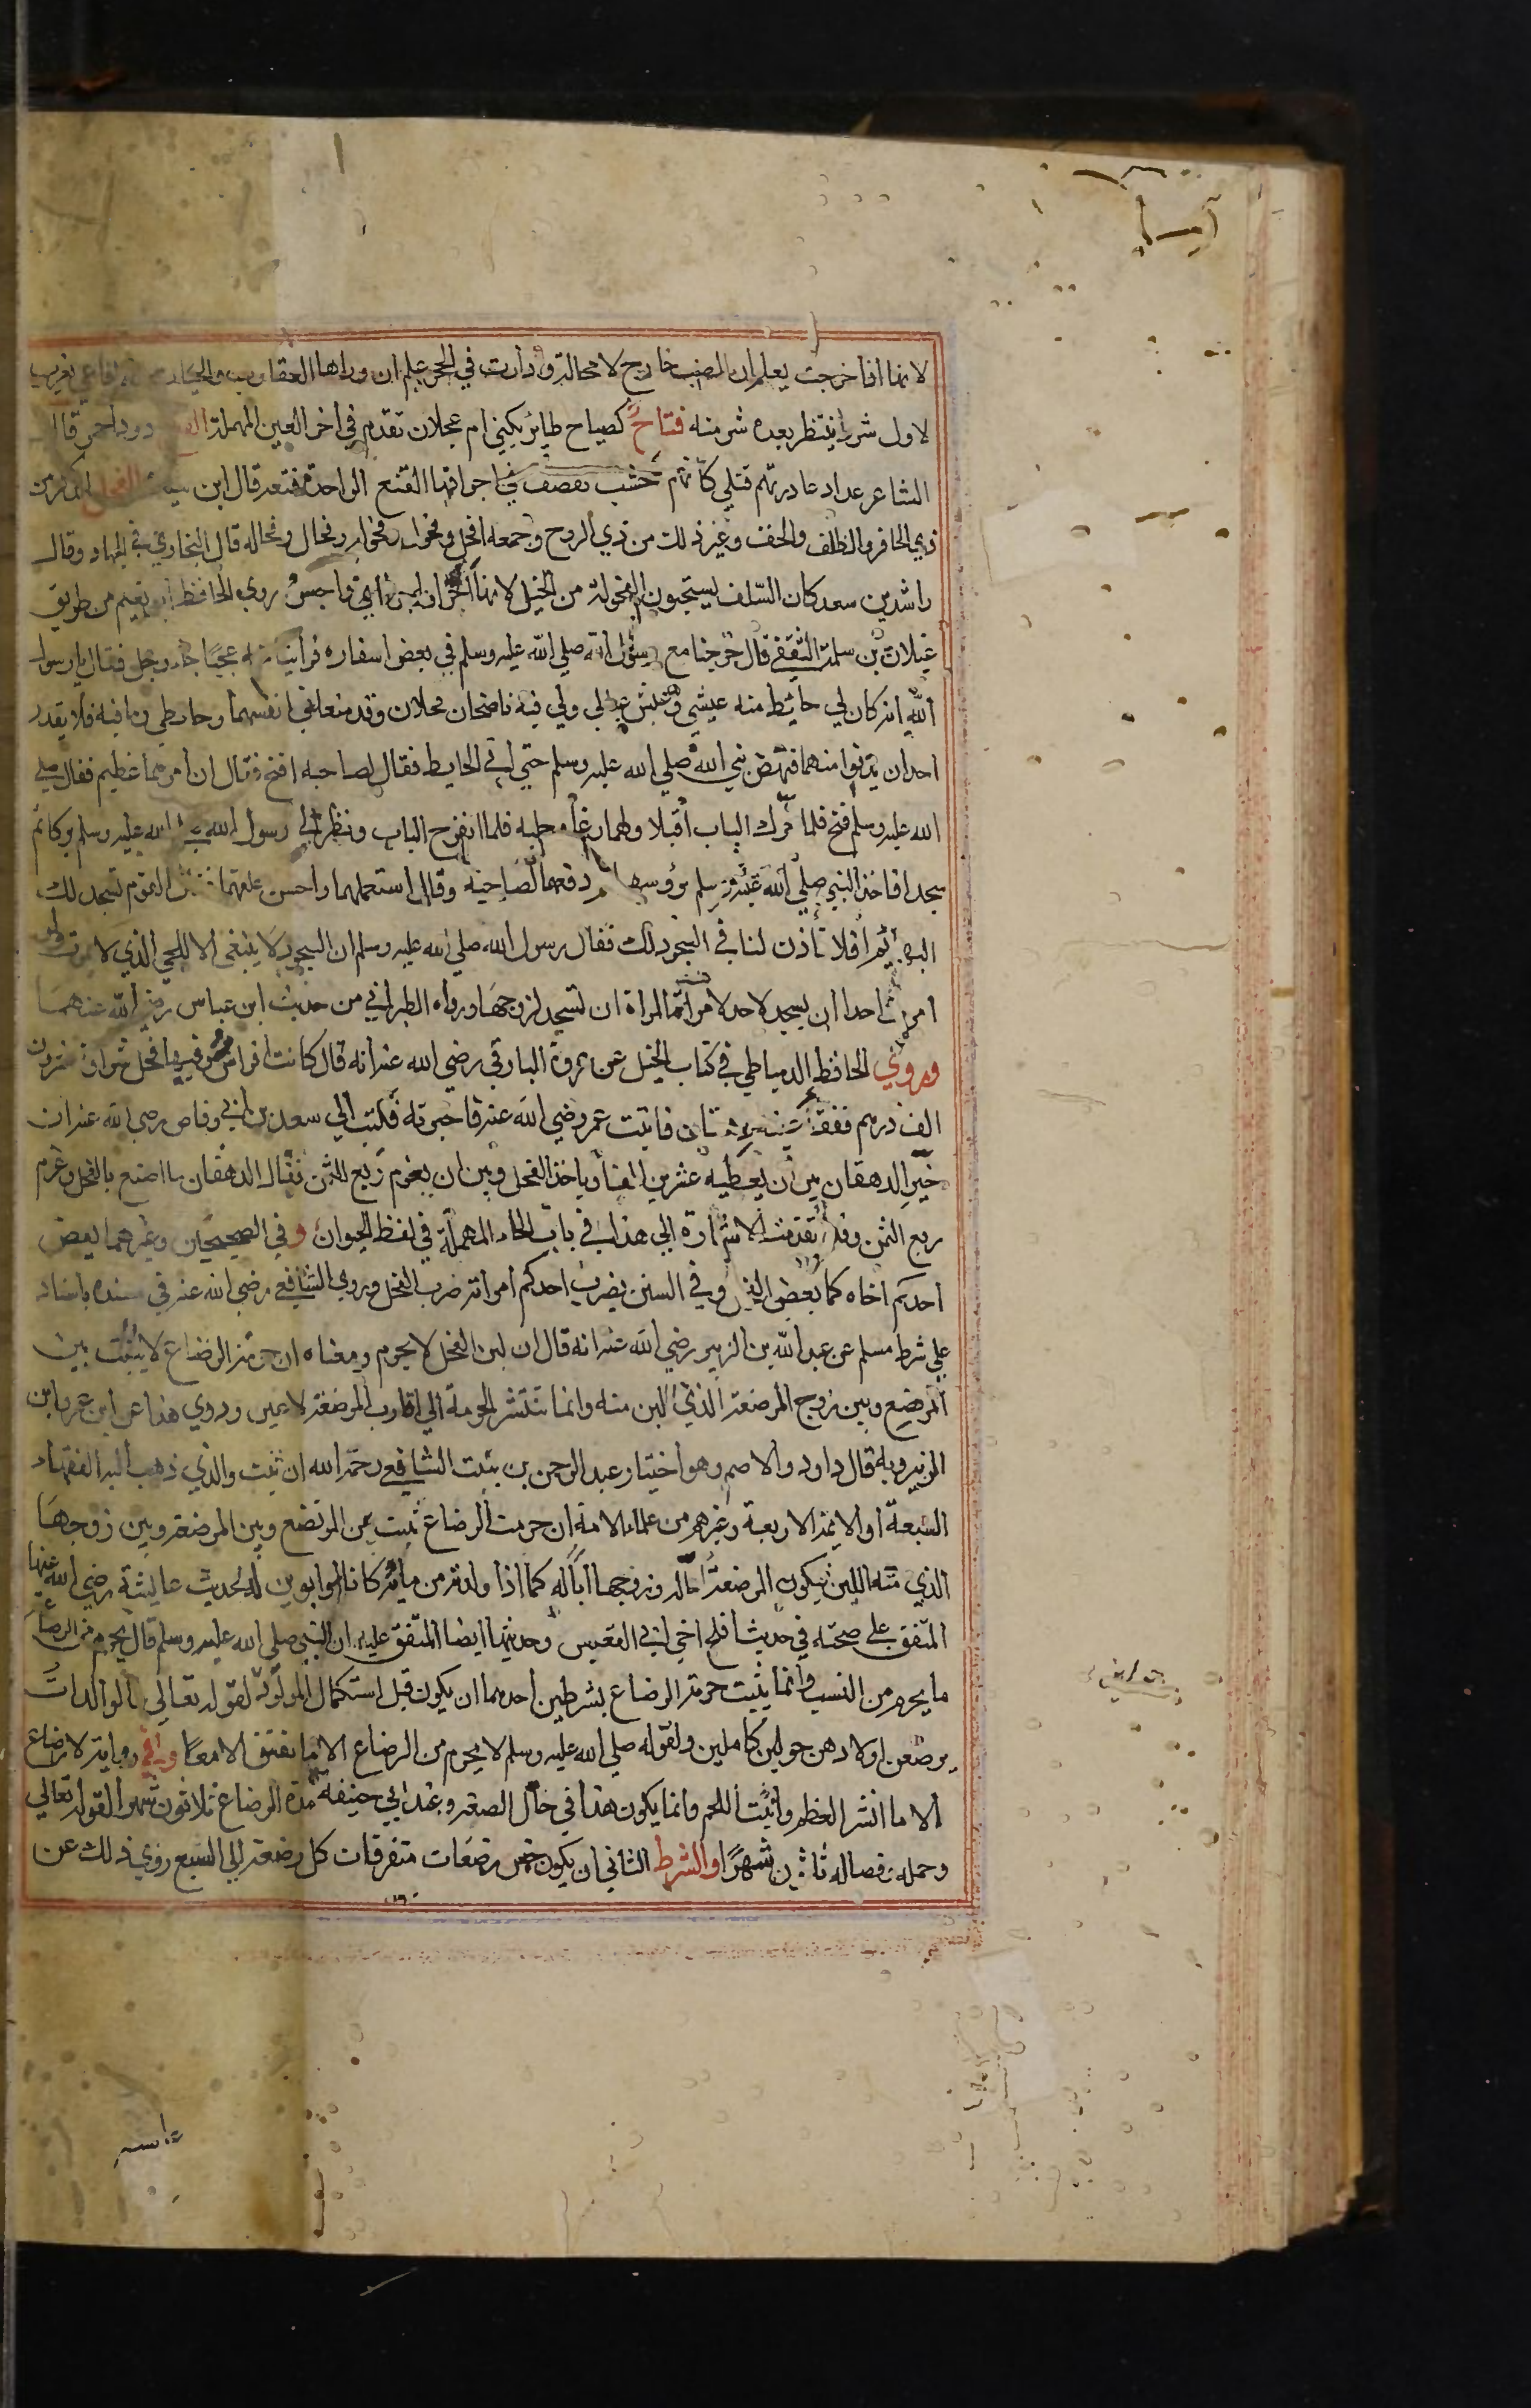 لانها اذا خرجت يعلم ان الضب خارج لا محالة واذا رات في الجحر علم ان وراها العقارب والحيات
لاول شر ينتظر بعده شر منه فتاح كصياح طاير يكني ام عجلان تقدم في اخر العين المهملة دود احمر قال
الشاعر غادرتهم قتلي كانهم خشب تقصف في اجوافها القتع الواحدة قتعة قال ابن سيده الفحل الذكر من
ذي الحافر والظلف والخف وغير ذلك من ذي الروح وجمعه افحل وفحول وفحال وفحاله قال البخاري في الجهاد وقال
راشد بن سعد كان السلف يستحبون الفحولة من الخيل لانها اجرا واجسر روي الحافظ ابو نعيم من طريق
غيلان بن سلمة الثقفي قال خرجنا مع رسول الله صلي الله عليه وسلم في بعض اسفاره فراينا منه عجبا جاء رجل فقال يا رسول
الله انه كان لي حائط منه عيشي وعيش عيالي ولي فيه ناضحان فحلان وقد منعاني انفسهما وحايطي وما فيه فلا يقدر
احد ان يدنوا منهما فنهض نبي الله صلي الله عليه وسلم حتي اتي الحايط فقال لصاحبه افتح فقال ان امرهما عظيم فقال صلي
الله عليه وسلم فتح فلما حرك الباب اقبلا ولهما رغا وجلبه فلما انفرج الباب ونظرا الي رسول الله صلي الله عليه وسلم بركا ثم
سجدا فاخذ النبي صلي الله عليه وسلم برؤسهما ثم دفعهما لصاحبه وقال استعملهما واحسن علفهما فقال القوم تسجد لك
البهائم افلا تأذن لنا في السجود لك فقال رسول الله صلي الله عليه وسلم ان السجود لا ينبغي الا للحي الذي لا يموت ولو
امرت احدا ان يسجد لاحد لامرت المراة ان تسجد لزوجها ورواه الطبراني من حديث ابن عباس رضي الله عنهما
وروي الحافظ الدمياطي في كتاب الخيل عن عروة البارقي رضي الله عنه انه قال كانت لي افراس فيها فحل شراؤه عشرون
الف درهم ففقأ عينه دهقان فاتيت عمر رضي الله عنه فاخبرته فكتب الي سعد بن ابي وقاص رضي الله عنه ان
خير الدهقان بين ان يعطيه عشرين الفا وياخذ الفحل وبين ان يغرم ربع الثمن فقال الدهقان ما اصنع بالفحل وغرم
ربع الثمن وقد تقدمت الاشارة الي هذا في باب الحاء المهملة في لفظ الحيوان وفي الصحيحين وغيرهما يعض
احدكم اخاه كما يعض الفحل وفي السنن يضرب احدكم امراته ضرب الفحل وروي الشافعي رضي الله عنه في مسنده باسناد
علي شرط مسلم عن عبد الله بن الزبير رضي الله عنه انه قال ان لبن الفحل لا يحرم ومعناه ان حرمة الرضاع لا يثبت بين
المرضع وبين زوج المرضعة الذي اللبن منه وانما تنتشر الحرمة الي اقارب المرضعة لا غير وروي هذا عن ابن عمر وابن
الزبير وبه قال داود والاصم وهو اختيار عبد الرحمن بن بنت الشافعي رحمه الله ان ثبت والذي ذهب اليه الفقهاء
السبعة او الايمة الاربعة وغيرهم من علماء الامة ان حرمة الرضاع ثبت بين المرتضع وبين المرضعة وبين زوجها
الذي منه اللبن فيكون المرضعة اما له وزوجها ابا له كما اذا ولدته من مايه كانا ابوين له لحديث عايشة رضي الله عنها
المتفق علي صحته في حديث افلح اخي ابي القعيس وحديثها ايضا المتفق عليه ان النبي صلي الله عليه وسلم قال يحرم من الرضاعة
ما يحرم من النسب وانما يثبت حرمة الرضاع بشرطين احدهما ان يكون قبل استكمال المولود لقوله تعالي والوالدات
يرضعن اولادهن حولين كاملين ولقوله صلي الله عليه وسلم لا يحرم من الرضاع الا ما فتق الامعا وفي رواية لا رضاع
الا ما انشر العظم وانبت اللحم وانما يكون هذا في حال الصغر وعند ابي حنيفه مدة الرضاع ثلاثون شهرا لقوله تعالي
وحمله وفصاله ثلاثون شهرا والشرط الثاني ان يكون خمس رضعات متفرقات كل رضعة الي الشبع روي ذلك عن